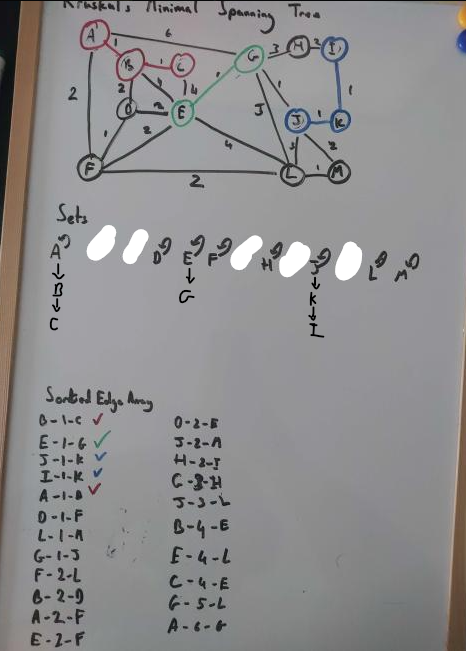 Kruskal's Minimal Spanning Tree
A 6 G 3 H 2 I
1 B 1 C
2 2 4 4 1 1 1
D 2 E J 1 K
1 2 4 5 3 2
F 2 L 1 M
Sets
A D E F H J L M
B G K
C I
Sorted Edge Array
B-1-C ✓
E-1-G ✓
J-1-K ✓
I-1-K ✓
A-1-B ✓
D-1-F
L-1-M
G-1-J
F-2-L
B-2-D
A-2-F
E-2-F
D-2-E
J-2-M
H-2-I
G-3-H
J-3-L
B-4-E
E-4-L
C-4-E
G-5-L
A-6-G